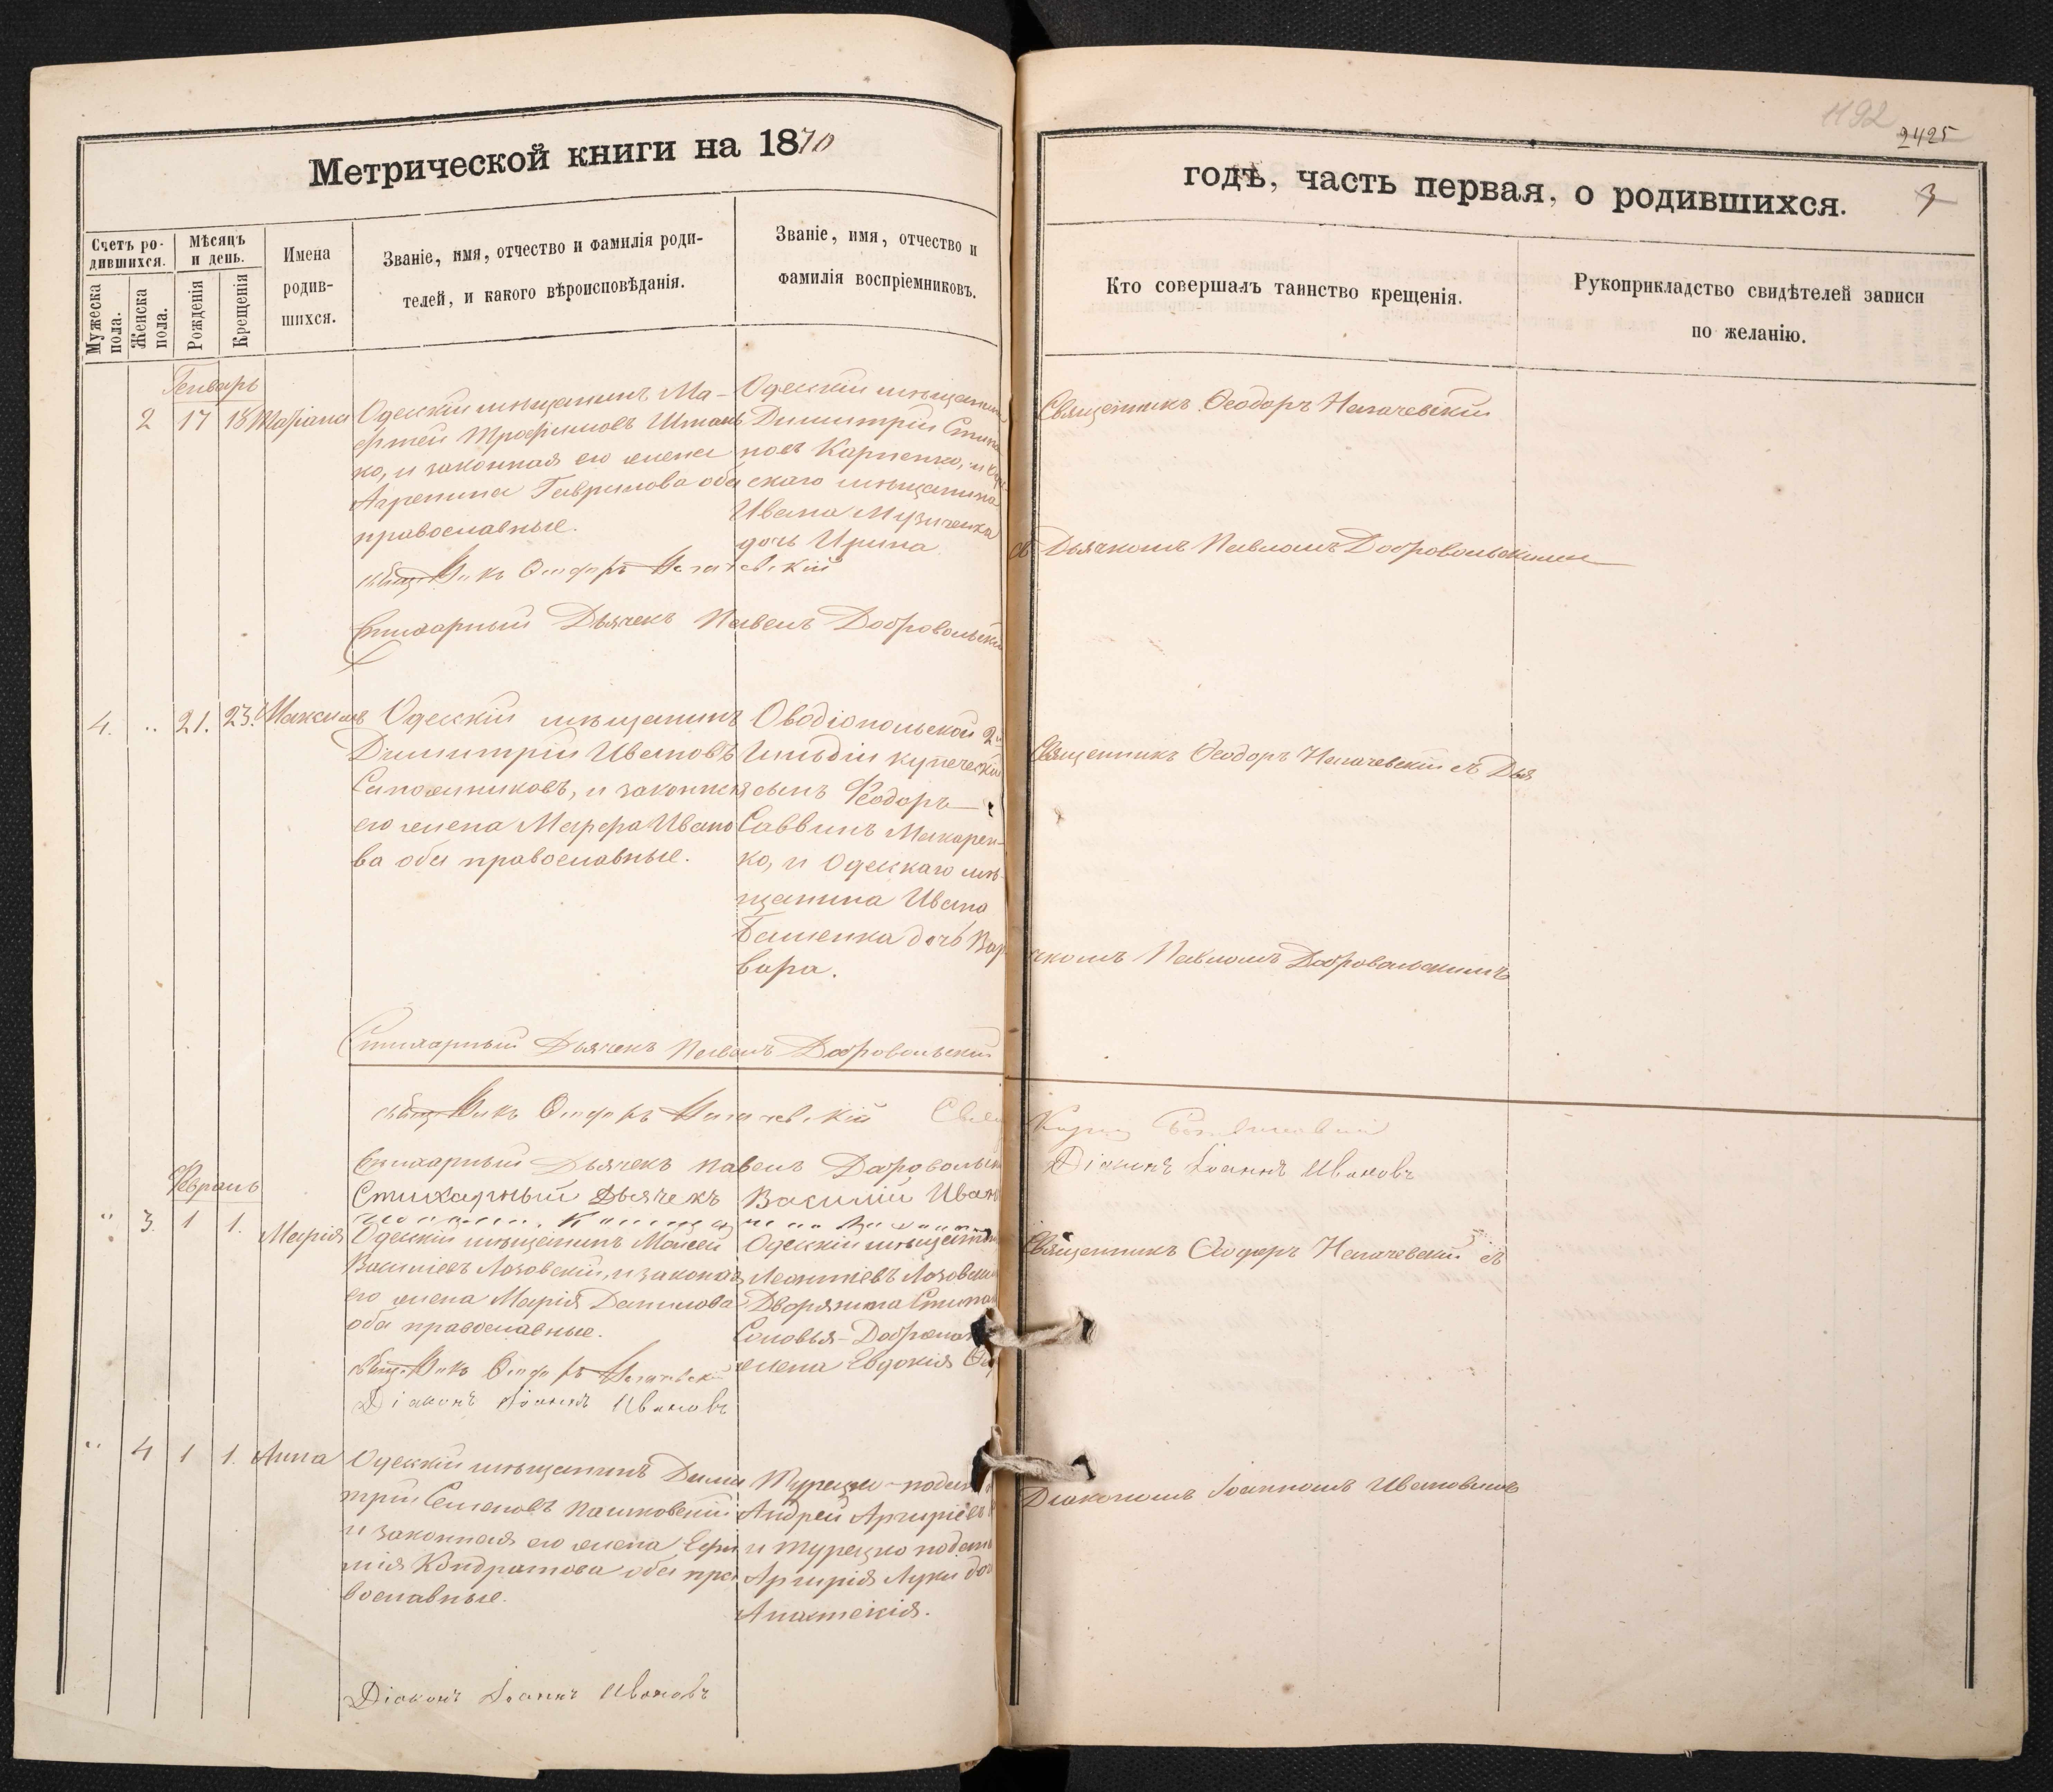 1192
2425
3
Метрической книги на 1870
годѣ, часть первая, о родившихся.
Счетъ ро-
дившихся.
Мужеска
пола.
Женска
пола.
Мѣсяцъ
и день.
Рожденія
Крещенія
Имена
родив-
шихся.
Званіе, имя, отчество и фамилія роди-
телей, и какого вѣроисповѣданія.
Званіе, имя, отчество и
фамилія воспріемниковъ.
Кто совершалъ таинство крещенія.
Рукоприкладство свидѣтелей записи
по желанію.
Генварь
2 17 18 Маріана
Одесскій мѣщанинъ Ма-
ѳтей Трофимовъ
ко, и законная его жена
Агрепина Гаврилова оба
православные.
Одесскій мѣщанинъ
Димитрій
повъ Карпенко, и
скаго мѣщанина
Ивана Музиченка
дочь Ирина
Священникъ Ѳеодоръ
съ Дьячкомъ Павломъ Добровольскимъ
Ѳеодоръ
Стихарный Дьячекъ Павелъ Добровольскій
4. " 21. 23. Максимъ
Одесскій мѣщанинъ
Димитрій Ивановъ
Сапожниковъ, и законная
его жена Марѳа Ивано
ва оба православные.
Овидіопольской 2й
Гильдіи купеческій
сынъ Ѳеодоръ
Саввинъ Макарен-
ко, и Одесскаго мѣ-
щанина Ивана
дочь Вар
вара.
Священникъ Ѳеодоръ съ Дья
чкомъ Павломъ Добровольскимъ
Стихарный Дьячекъ Павелъ Добровольскій
Ѳеодоръ
Стихарный Дьячекъ Павелъ Добровольскій
Діаконъ Іоаннъ Ивановъ
Стихарный Дьячекъ Василій Иван
Февраль
" 3. 1 1. Марія
Одесскій мѣщанинъ Моисей
Василіевъ Лозовскій, и законная
его жена Марія Данилова
оба православные.
Одесскій мѣщанинъ
Леонтіевъ Лозовскій
Дворянина
Соловья-
жена Евдокія
Священникъ Ѳеодоръ съ
Ѳеодоръ
Діаконъ Іоаннъ Ивановъ
" 4 1 1. Анна
Одесскій мѣщанинъ Дими
трій Семеновъ Пашковскій
и законная его жена Еѳи
мія Кондратова оба пра
вославные.
Турецко-подан
Андрей Аргиріевъ
и турецко подан
Аргирія Луки доч
Діакономъ Іоанномъ Ивановымъ
Діаконъ Іоаннъ Ивановъ